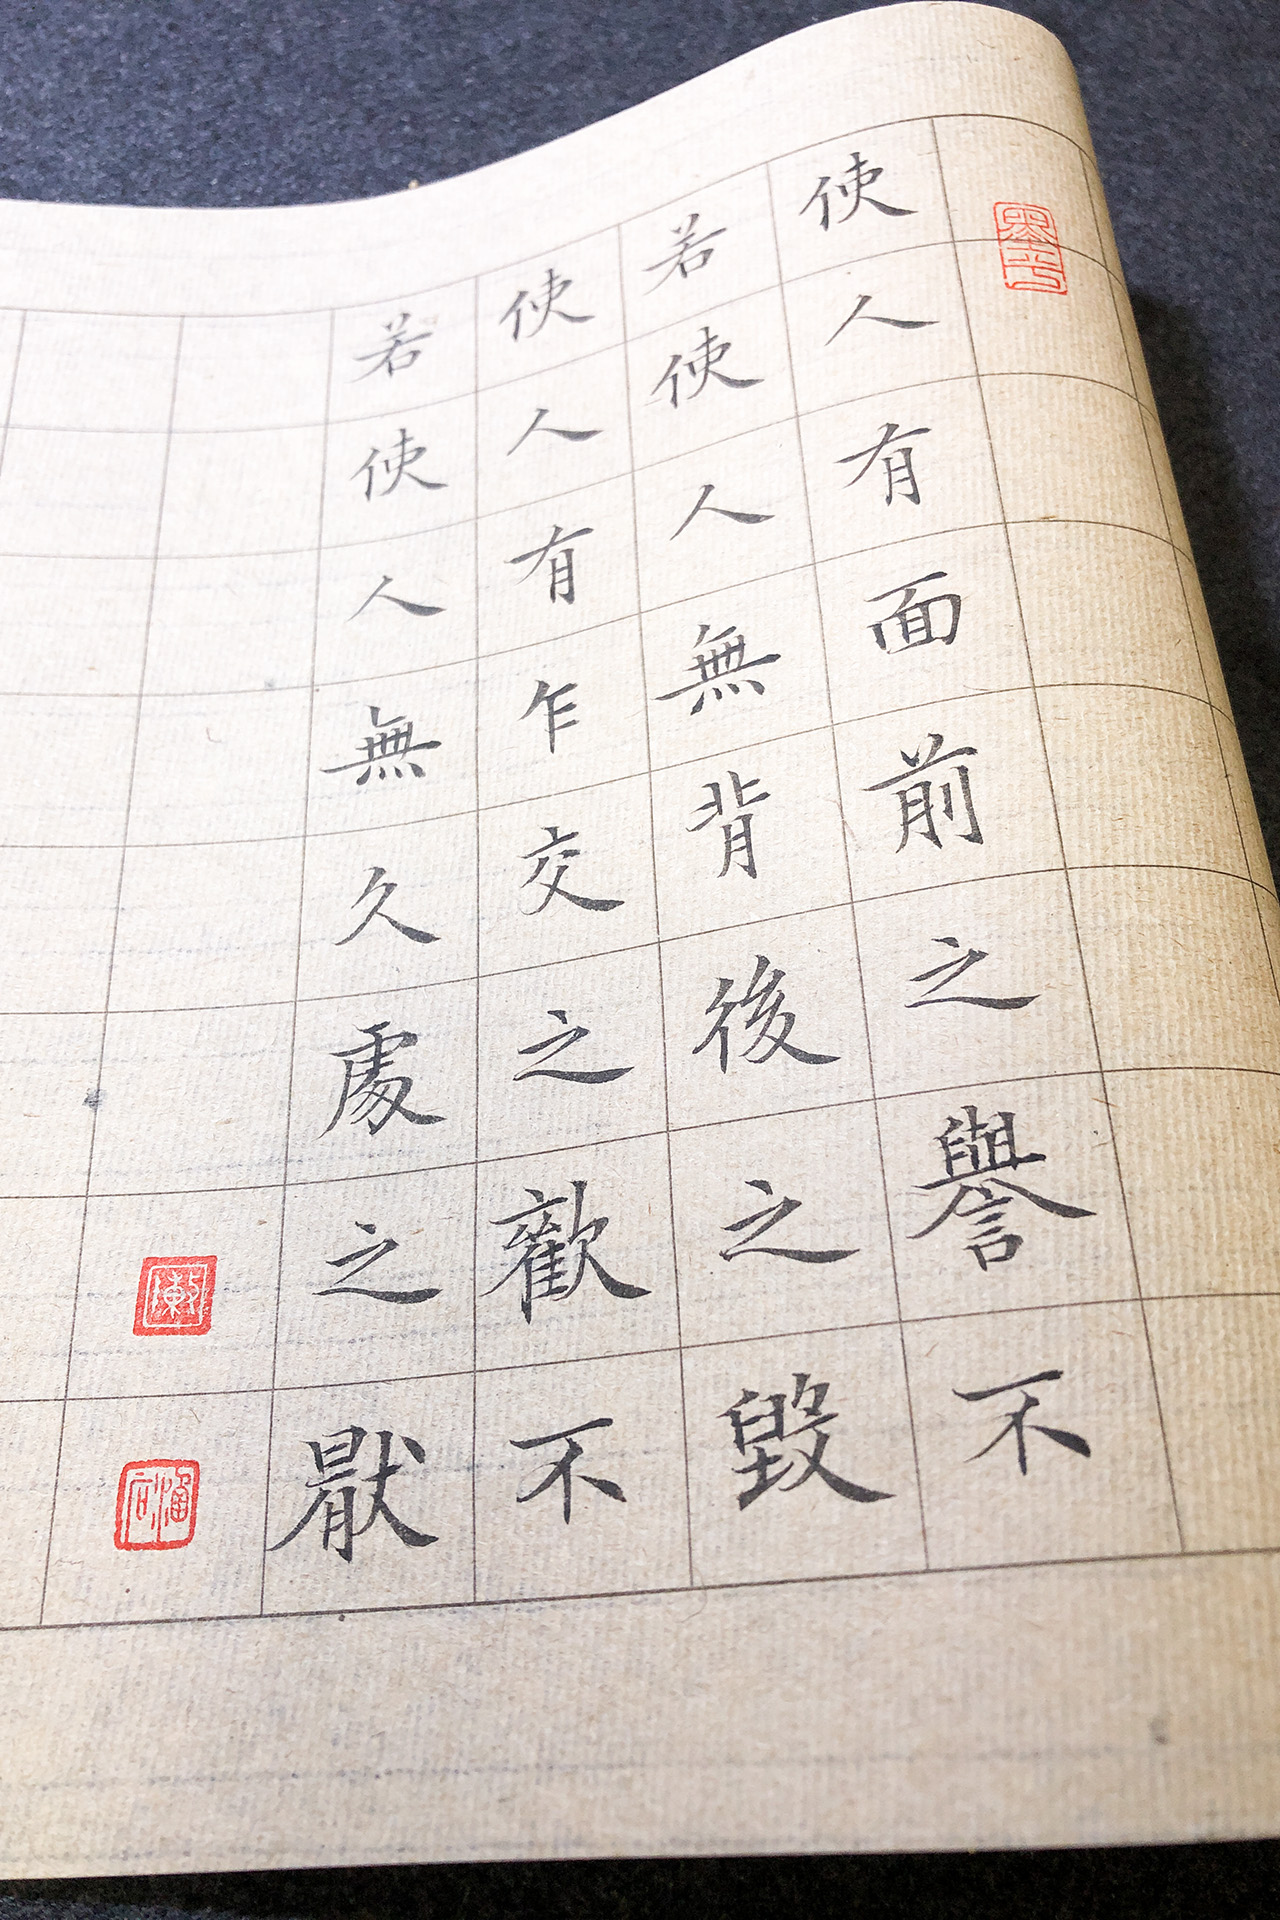 使人有面前之譽不
若使人無背後之毀
使人有乍交之歡不
若使人無久處之厭